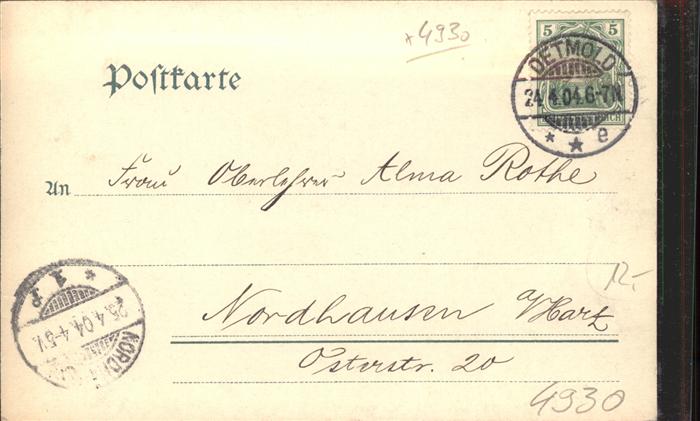 *4930
5 5
Postkarte
DETMOLD
24.4.04.6-7N.
* * e
REICH
An Frau Oberlehrer Alma Rothe
12.-
Nordhausen a/Harz
Osterstr. 20
25.4.04.4-5V.
4930